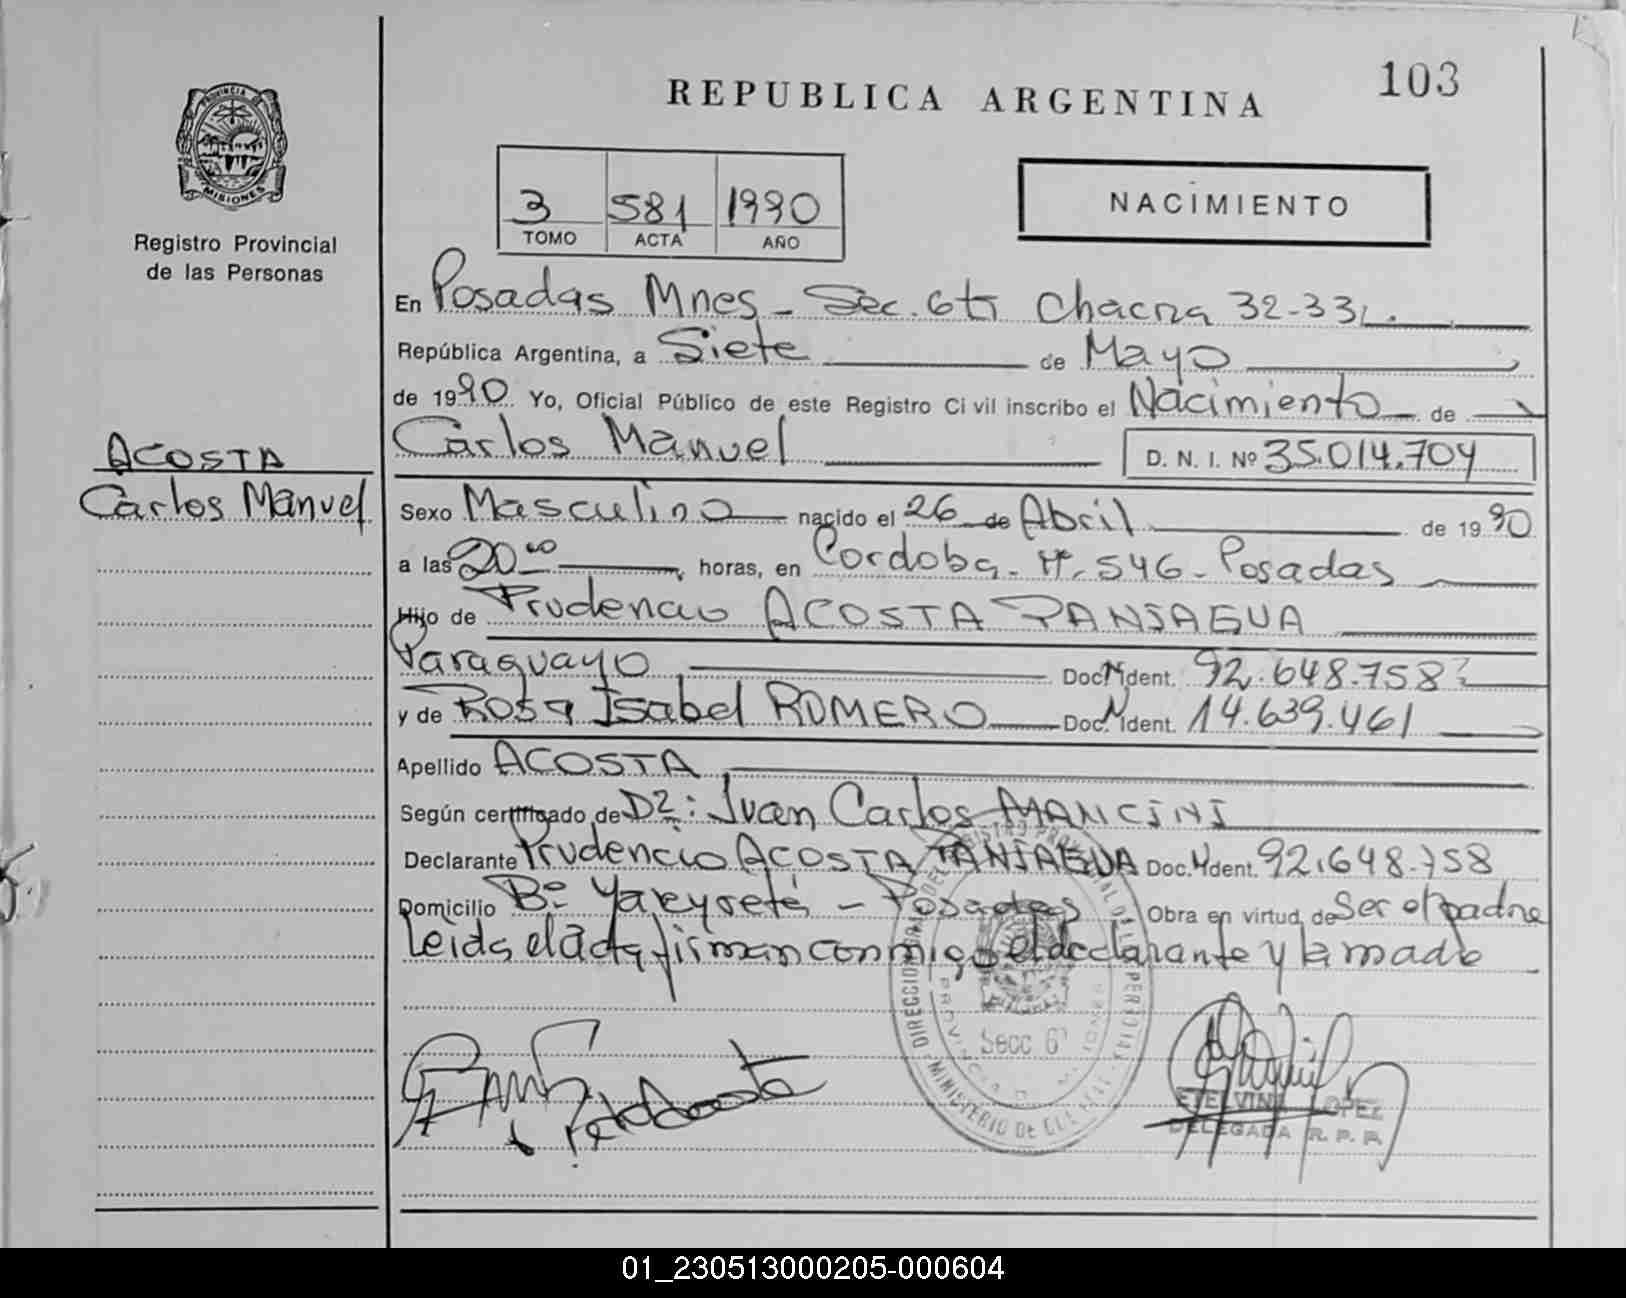 103
REPUBLICA ARGENTINA
PROVINCIA DE
MISIONES
Registro Provincial
de las Personas
3 581 1990
TOMO ACTA AÑO
NACIMIENTO
En Posadas Mnes - Sec. 6ta Chacra 32-33,.
República Argentina, a Siete de Mayo
de 1990 Yo, Oficial Público de este Registro Civil inscribo el Nacimiento de
Carlos Manuel D. N. I. Nº 35.014.704
ACOSTA
Carlos Manuel
Sexo Masculino nacido el 26 de Abril de 1990
a las 20 00 horas, en Cordoba - Nº 546 - Posadas
Hijo de Prudencio ACOSTA PANIAGUA
Paraguayo Doc. Ident. 92.648.758
y de Rosa Isabel ROMERO Doc. Ident. 14.639.461
Apellido ACOSTA
Según certificado de Dr: Juan Carlos MANCINI
Declarante Prudencio ACOSTA PANIAGUA Doc. Ident. 92.648.758
Domicilio Bº Yaceyretá - Posadas Obra en virtud de Ser el padre
Leida el acta firman conmigo el declarante y la madre
Secc 6
MINISTERIO DE
ETELVINA LOPEZ
DELEGADA R. P. P.
01_230513000205-000604